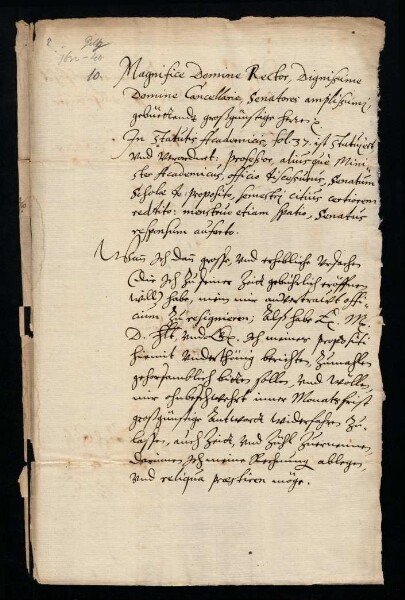 10.
Magnifice Domine Rector, Dignissime
Domine Cancellarie, Senatores amplissimi,
gebürlende großgünstige herrn
In statutis Academicis, fol. 37. ist statuiert
und verordnet: professor, aliusque Mini-
ster Academicus, officio discessurus, Senatum
Schola de proposito, semestri citius certiorem
reddito: menstruo etiam spatio, Senatus
responsum auferto.
Wann ich dan große, und erhebliche ursachen
(die ich zu seiner Zeidt gebührlich eröffnen
will) habe, mein mir anvertrauts offi-
cium zu resignieren; Alß habe E. M.
D. Hlt. und Ex. ich meines propositi
hiemit underthänig berichten, zumahlen
gehorsamblich bitten sollen, und wollen
mir ohnbeschwehrt inner Monatsfrist
großgünstige Antwordt widerfahren zu-
lassen, auch Zeidt, und Zihl zuernennen,
darinnen ich meine Rechnung ablegen,
und reliqua præstiren möge.